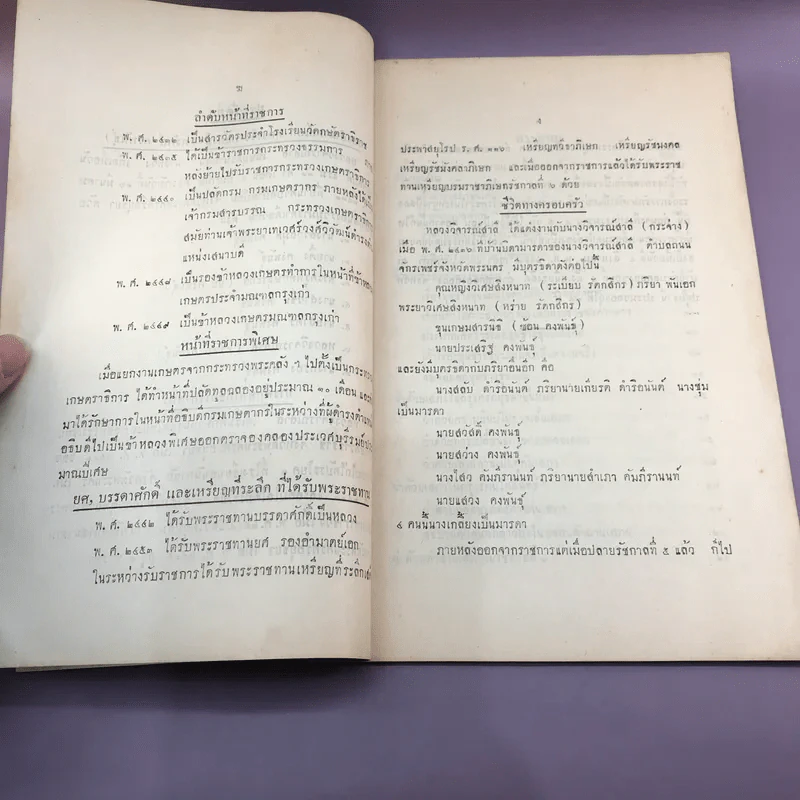 ข
ลำดับหน้าที่ราชการ
พ. ศ. ๒๔๓๒ เป็นสารวัตรประจำโรงเรียนวัดกษัตราธิราช
พ. ศ. ๒๔๓๕ ได้เป็นข้าราชการกระทรวงธรรมการ ภาย
หลังย้ายไปรับราชการกระทรวงเกษตราธิการ
พ. ศ. ๒๔๔๐ เป็นปลัดกรม กรมเกษตรากร ภายหลังได้เป็น
เจ้ากรมสารบรรณ กระทรวงเกษตราธิการ
สมัยท่านเจ้าพระยาเทเวศร์วงศ์วิวัฒน์ดำรงตำ
แหน่งเสนาบดี
พ. ศ. ๒๔๔๘ เป็นรองข้าหลวงเกษตรทำการในหน้าที่ข้าหลวง
เกษตรประจำมณฑลกรุงเก่า
พ. ศ. ๒๔๔๙ เป็นข้าหลวงเกษตรมณฑลกรุงเก่า
หน้าที่ราชการพิเศษ
เมื่อแยกงานเกษตรจากกระทรวงพระคลัง ฯ ไปตั้งเป็นกระทรวง
เกษตราธิการ ได้ทำหน้าที่ปลัดทูลฉลองอยู่ประมาณ ๑๐ เดือน และ
มาได้รักษาการในหน้าที่อธิบดีกรมเกษตากรในระหว่างที่ผู้ดำรงตำแหน่ง
อธิบดีไปเป็นข้าหลวงพิเศษออกตราจองคลองประเวศบุรีรมย์ประ
มาณปีเศษ
ยศ, บรรดาศักดิ์ และเหรียญที่ระลึก ที่ได้รับพระราชทาน
พ. ศ. ๒๔๔๒ ได้รับพระราชทานบรรดาศักดิ์เป็นหลวง
พ. ศ. ๒๔๕๓ ได้รับพระราชทานยศ รองอำมาตย์เอก
ในระหว่างรับราชการได้รับพระราชทานเหรียญที่ระลึกเสด็จ
ค
ประพาสยุโรป ร. ศ. ๑๑๖ เหรียญทวีธาภิเษก เหรียญรัชมงคล
เหรียญรัชมังคลาภิเษก และเมื่อออกจากราชการแล้วได้รับพระราช
ทานเหรียญบรมราชาภิเษกรัชกาลที่ ๖ ด้วย
ชีวิตทางครอบครัว
หลวงวิจารณ์สาลี ได้แต่งงานกับนางวิจารณ์สาลี (กระจ่าง)
เมื่อ พ. ศ. ๒๔๓๖ ที่บ้านบิดามารดาของนางวิจารณ์สาลี ตำบลถนน
จักรเพชร์จังหวัดพระนคร มีบุตรธิดาดังต่อไปนี้
คุณหญิงวิเศษสิงหนาท (ระเบียบ รัตกสิกร) ภริยา พันเอก
พระยาวิเศษสิงหนาท (หร่าย รัตกสิกร)
ขุนเกษมสารนิธิ (ซ้อน คงพันธุ์)
นายประเสริฐ คงพันธุ์
และยังมีบุตรธิดากับภริยาอื่นอีก คือ
นางสลับ ดำริอนันต์ ภริยานายเกียรติ ดำริอนันต์ นางชุ่ม
เป็นมารดา
นายสวัสดิ์ คงพันธุ์
นายสว่าง คงพันธุ์
นางไสว คัมภีรานนท์ ภริยานายสำเภา คัมภีรานนท์
นายแสวง คงพันธุ์
๔ คนนี้นางเกลี้ยงเป็นมารดา
ภายหลังออกจากราชการแต่เมื่อปลายรัชกาลที่ ๕ แล้ว ก็ไป